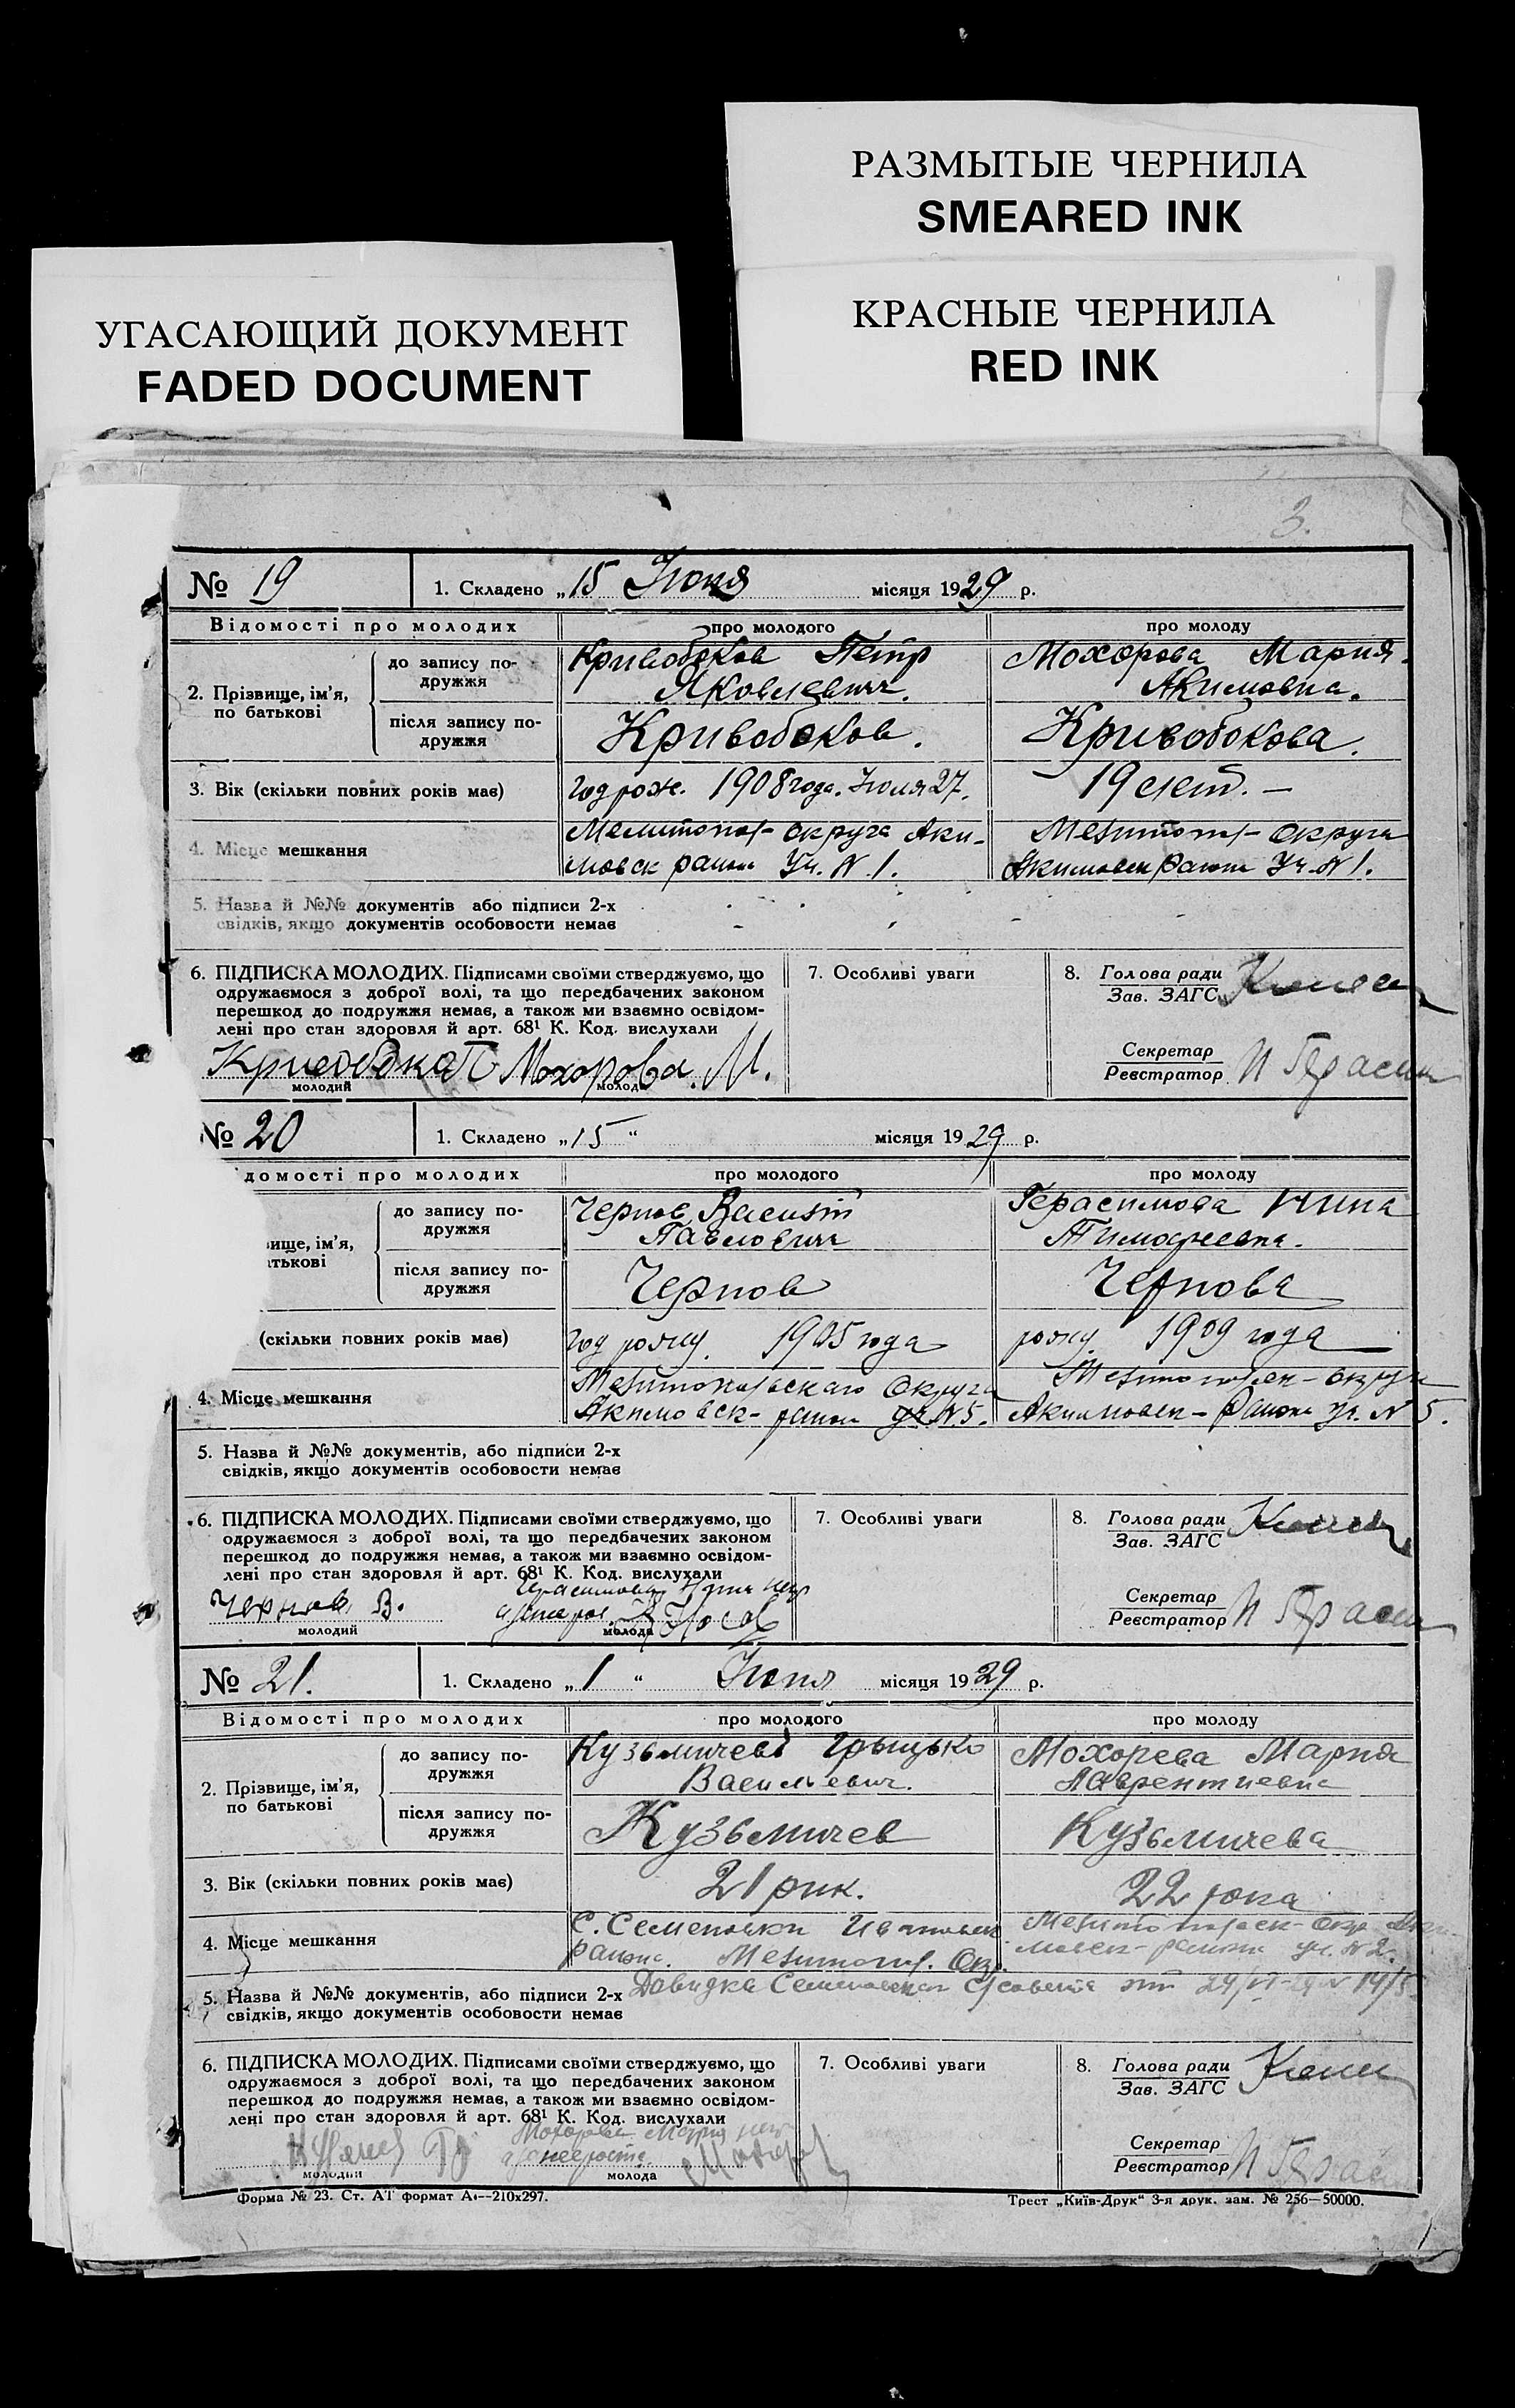 РАЗМЫТЫЕ ЧЕРНИЛА
SMEARED INK
КРАСНЫЕ ЧЕРНИЛА
RED INK
УГАСАЮЩИЙ ДОКУМЕНТ
FADED DOCUMENT
3.
№ 19 1. Складено „15 Июня місяця 1929 р.
Відомості про молодих про молодого про молоду
2. Прізвище, ім'я, по батькові
до запису по-дружжя Кривобоков Петр Мохорова Мария
Яковлевич. Акимовна.
після запису по-дружжя Кривобоков. Кривобокова.
3. Вік (скільки повних років має) год рож. 1908 года. Июля 27. 19 лет. —
4. Місце мешкання Мелитопол- округа Аки- Мелитопол- округа
мовск район Уч. № 1. Акимовск района Уч. № 1.
5. Назва й №№ документів або підписи 2-х
свідків, якщо документів особовости немає
6. ПІДПИСКА МОЛОДИХ. Підписами своїми стверджуємо, що
одружаємося з доброї волі, та що передбачених законом
перешкод до подружжя немає, а також ми взаємно освідом-
лені про стан здоровля й арт. 68¹ К. Код. вислухали
Мохорова. М.
молодий молода
7. Особливі уваги
8. Голова ради
Зав. ЗАГС
Секретар
Реєстратор
№ 20 1. Складено „15“ місяця 1929 р.
домості про молодих про молодого про молоду
вище, ім'я,
атькові
до запису по-дружжя Чернов Василий Герасимова Нина
Павлович Тимофеевна.
після запису по-дружжя Чернов Чернова
(скільки повних років має) год рожд. 1905 года рожд. 1909 года
4. Місце мешкання Мелитопольскаго Округа Мелитопольск- округа
Акимовск- район уч. № 5. Акимовск- района уч. № 5.
5. Назва й №№ документів, або підписи 2-х
свідків, якщо документів особовости немає
6. ПІДПИСКА МОЛОДИХ. Підписами своїми стверджуємо, що
одружаємося з доброї волі, та що передбачених законом
перешкод до подружжя немає, а також ми взаємно освідом-
лені про стан здоровля й арт. 68¹ К. Код. вислухали
Чернов В.
молодий молода
7. Особливі уваги
8. Голова ради
Зав. ЗАГС
Секретар
Реєстратор
№ 21. 1. Складено „1“ Июля місяця 1929 р.
Відомості про молодих про молодого про молоду
2. Прізвище, ім'я,
по батькові
до запису по-дружжя Кузьмичев Грыцько Мохорева Мария
Васильевич. Лаврентиевна
після запису по-дружжя Кузьмичев Кузьмичева
3. Вік (скільки повних років має) 21 рик. 22 рока
4. Місце мешкання С. Семеновки Мелитопольск- Окр
района. Мелитопол. Окр. мовск- района уч. № 2.
5. Назва й №№ документів, або підписи 2-х
свідків, якщо документів особовости немає
6. ПІДПИСКА МОЛОДИХ. Підписами своїми стверджуємо, що
одружаємося з доброї волі, та що передбачених законом
перешкод до подружжя немає, а також ми взаємно освідом-
лені про стан здоровля й арт. 68¹ К. Код. вислухали
молодий молода
7. Особливі уваги
8. Голова ради
Зав. ЗАГС
Секретар
Реєстратор
Форма № 23. Ст. АТ формат А₄—210х297.
Трест „Київ-Друк“ 3-я друк. зам. № 256—50000.